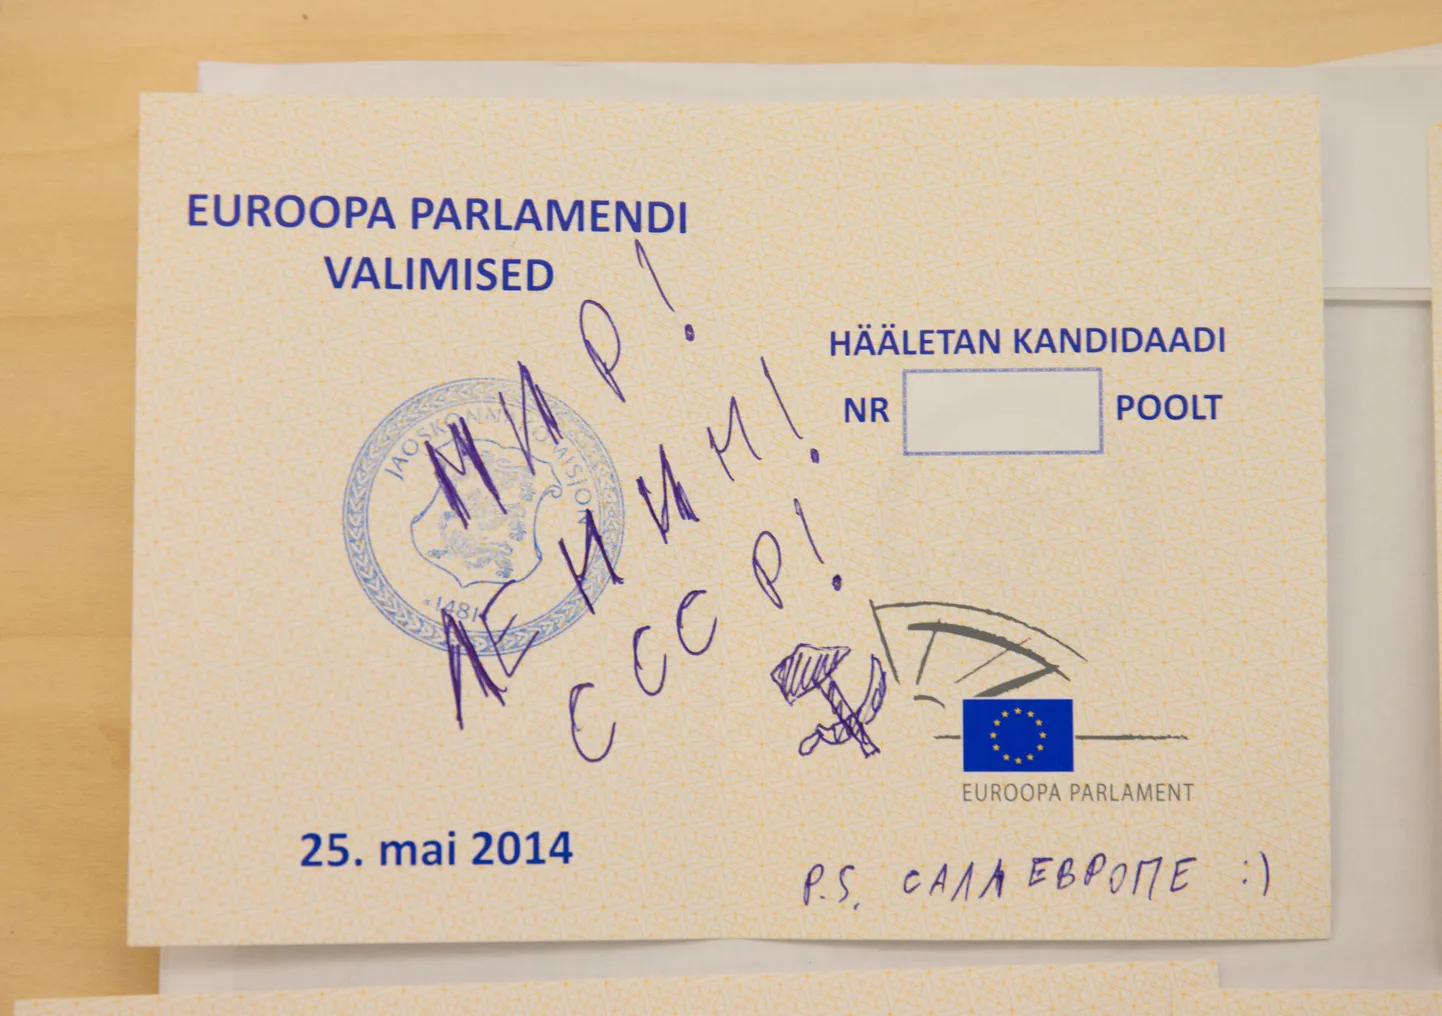 EUROOPA PARLAMENDI
VALIMISED
HÄÄLETAN KANDIDAADI
NR POOLT
JAOSKONNAKOMISJON
1481
МИР!
ЛЕНИН!
СССР!
EUROOPA PARLAMENT
25. mai 2014
P.S. САЛА ЕВРОПЕ :)